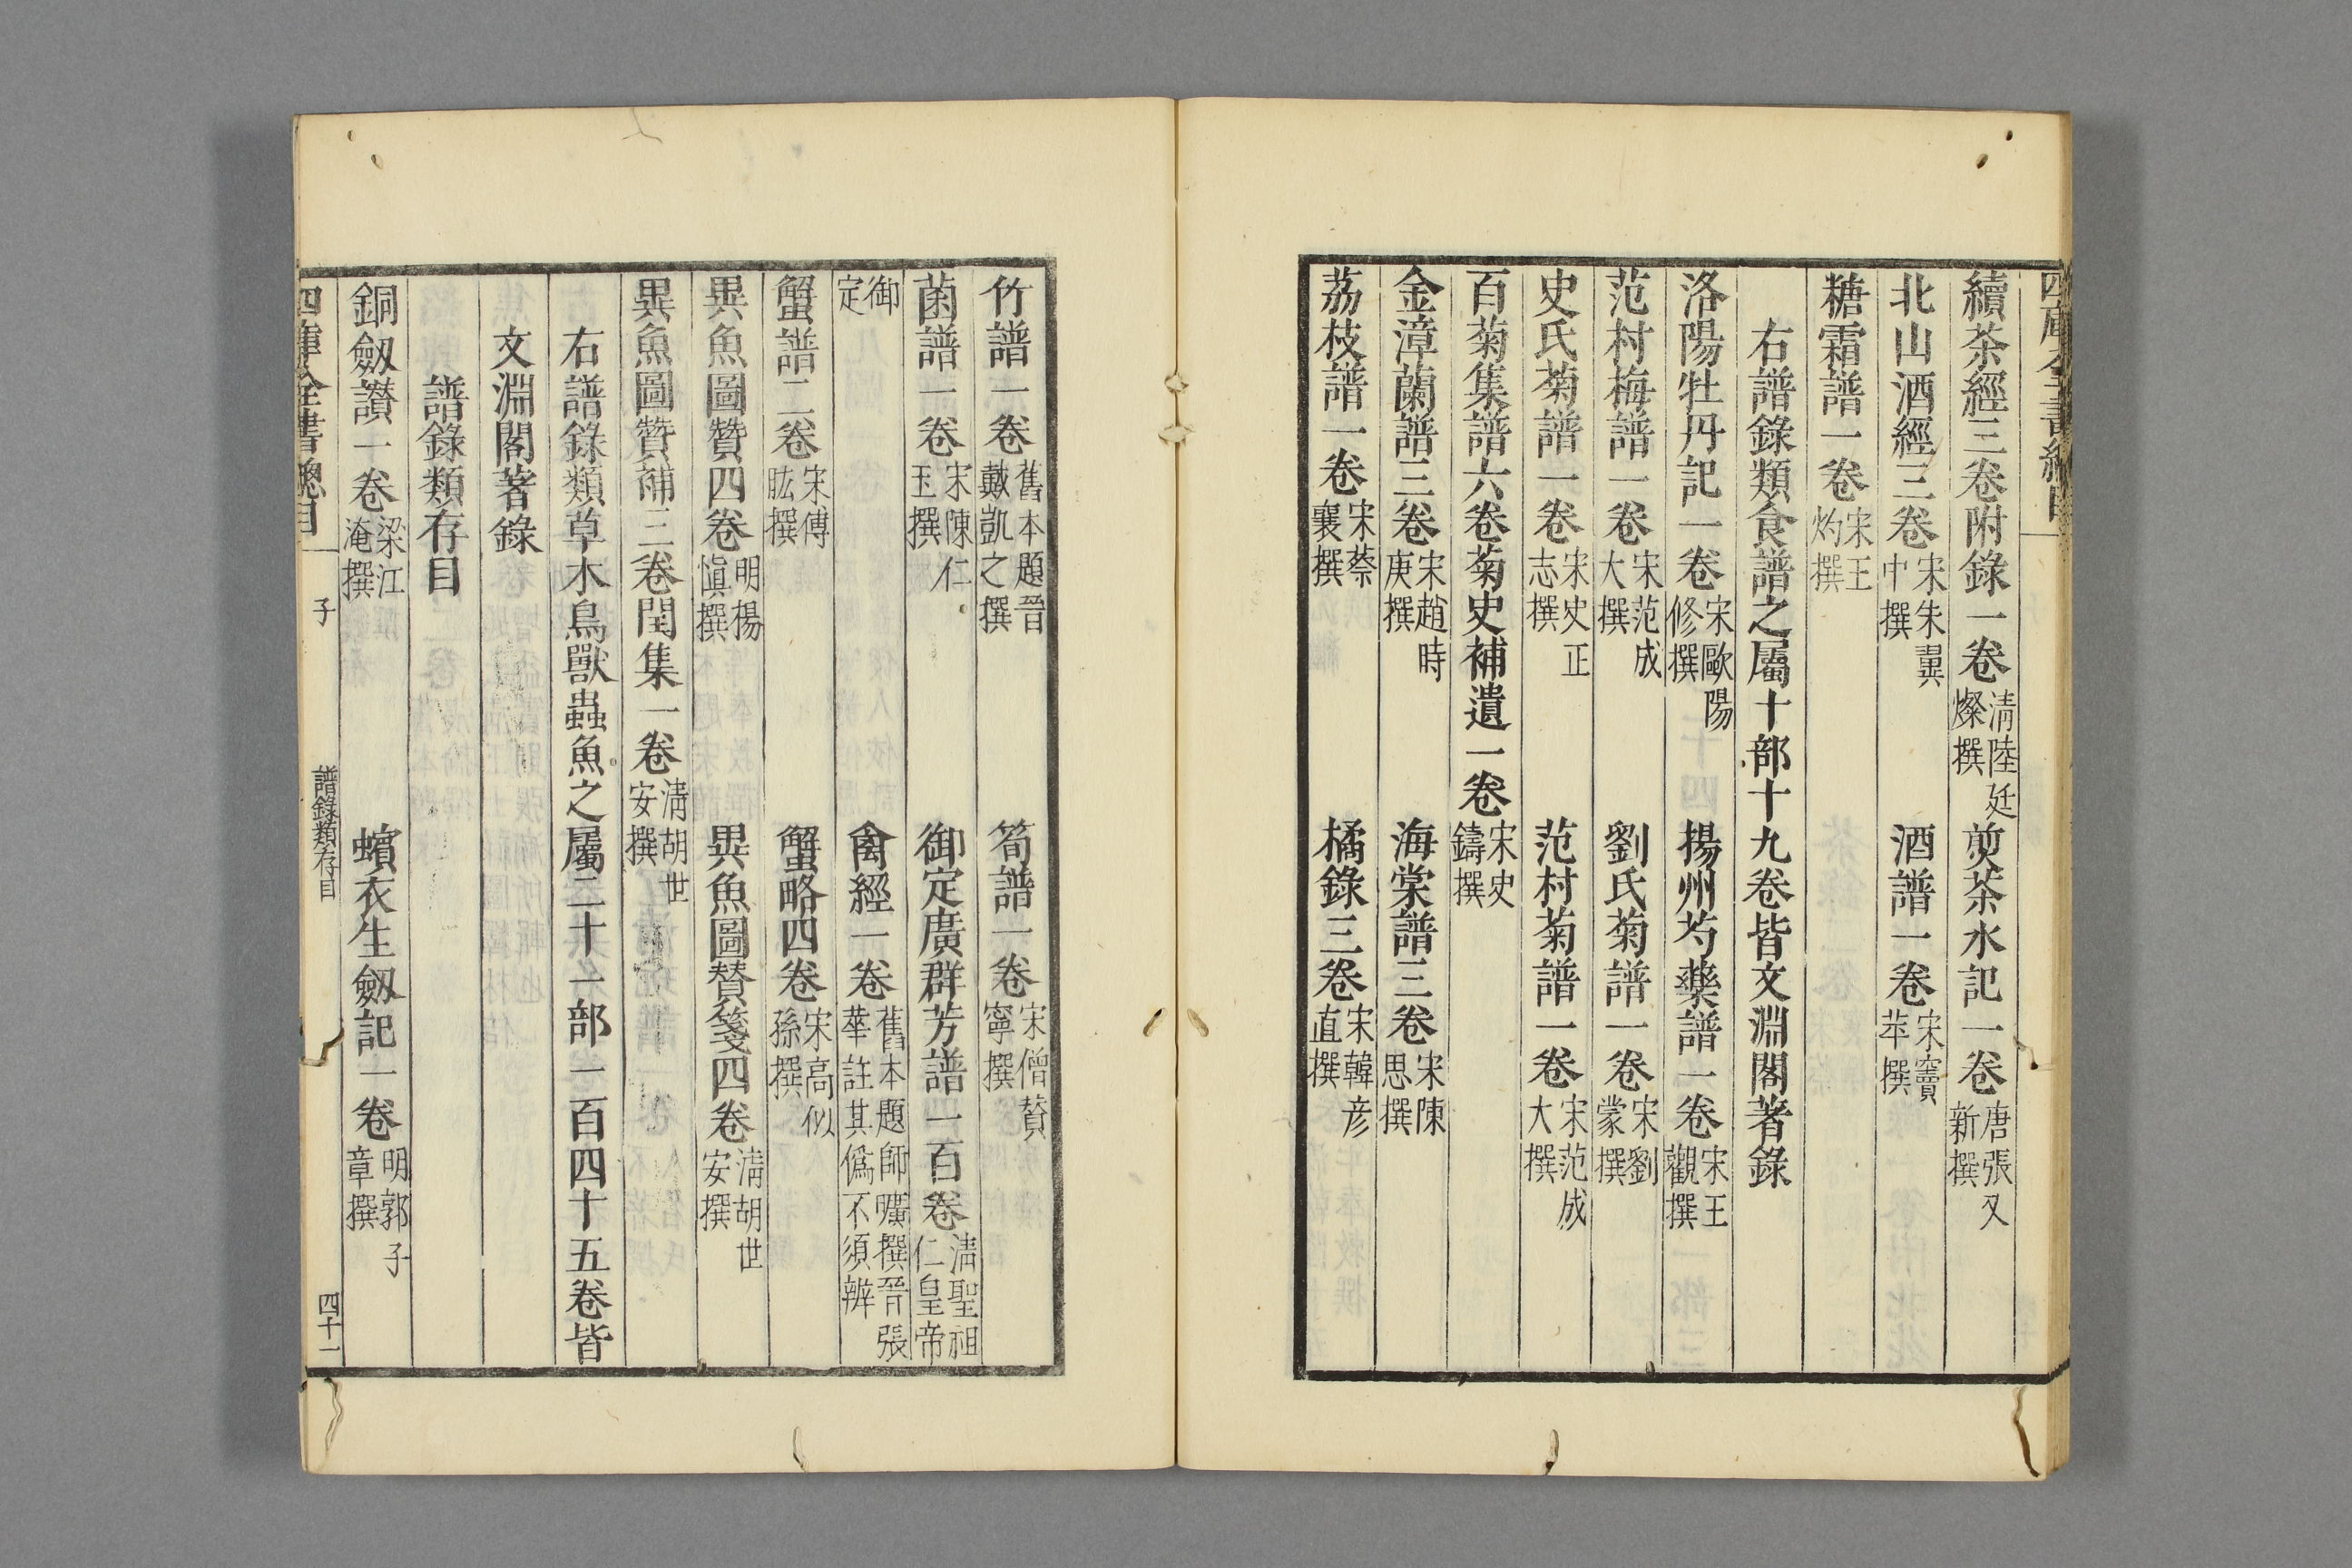 續茶經三卷附錄一卷清陸廷燦撰 煎茶水記一卷唐張又新撰
北山酒經三卷宋朱翼中撰 酒譜一卷宋竇苹撰
糖霜譜一卷宋王灼撰
右譜錄類食譜之屬十部十九卷皆文淵閣著錄
洛陽牡丹記一卷宋歐陽修撰 揚州芍藥譜一卷宋王觀撰
范村梅譜一卷宋范成大撰 劉氏菊譜一卷宋劉蒙撰
史氏菊譜一卷宋史正志撰 范村菊譜一卷宋范成大撰
百菊集譜六卷菊史補遺一卷宋史鑄撰
金漳蘭譜三卷宋趙時庚撰 海棠譜三卷宋陳思撰
荔枝譜一卷宋蔡襄撰 橘錄三卷宋韓彥直撰
竹譜一卷舊本題晉戴凱之撰 筍譜一卷宋僧贊寧撰
菌譜一卷宋陳仁玉撰 御定廣群芳譜一百卷清聖祖仁皇帝
御定 禽經一卷舊本題師曠撰晉張華註其僞不須辦
蟹譜二卷宋傅肱撰 蟹略四卷宋高似孫撰
異魚圖贊四卷明楊慎撰 異魚圖贊箋四卷清胡世安撰
異魚圖贊補三卷閏集一卷清胡世安撰
右譜錄類草木鳥獸蟲魚之屬二十一部一百四十五卷皆
文淵閣著錄
譜錄類存目
銅劔讃一卷梁江淹撰 蠙衣生劔記一卷明郭子章撰
四庫全書總目 子 譜錄類存目 四十一